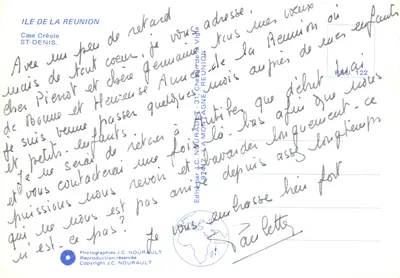 ILE DE LA REUNION
Case Créole
ST-DENIS.
Avec un peu de retard
mais de tout coeur, je vous adresse,
cher Pierrot et chère Germaine, tous mes voeux
de Bonne et Heureuse Année de la Réunion où
je suis venue passer quelques mois auprès de mes enfants
et petits-enfants.
Je serai de retour à que début mai
et vous contacterai une fois là-bas afin que nous
puissions nous revoir et bavarder longuement - ce
qui ne nous est pas arrivé depuis assez longtemps
n'est-ce pas? Je vous embrasse bien fort
Paulette
Edité par J.C. NOURAULT - 37, Chemin de la Vigie
LA MONTAGNE REUNION
RAU 122
Photographies J.C. NOURAULT
Reproduction réservée
Copyright J.C. NOURAULT